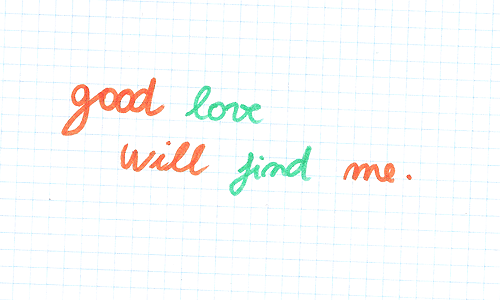 good love
will find me.